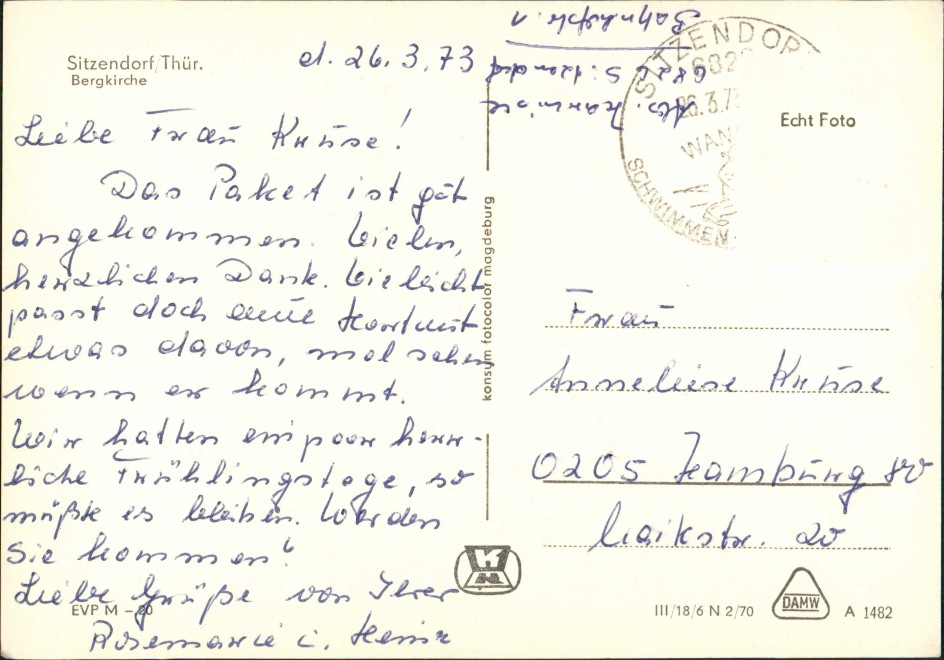 Sitzendorf/Thür.
Bergkirche
d. 26.3.73
Liebe Frau Kruse!
Das Paket ist gut
angekommen. Vielen,
herzlichen Dank. Vielleicht
passt doch
etwas davon, mal sehen
wenn er kommt.
Wir hatten ein paar herr-
liche Frühlingstage, so
müßte es bleiben. Werden
Sie kommen?
Liebe Grüße von Ihrer
Rosemarie u. Heinz
EVP M – 20
konsum fotocolor magdeburg
Abs.
682 Sitzendorf
Bahnhofstr. 1
SITZENDORF
682
26.3.73
WAN
SCHWIMMEN
Echt Foto
Frau
Anneliese Kruse
0205 Hamburg 80
20
III/18/6 N 2/70
DAMW
A 1482